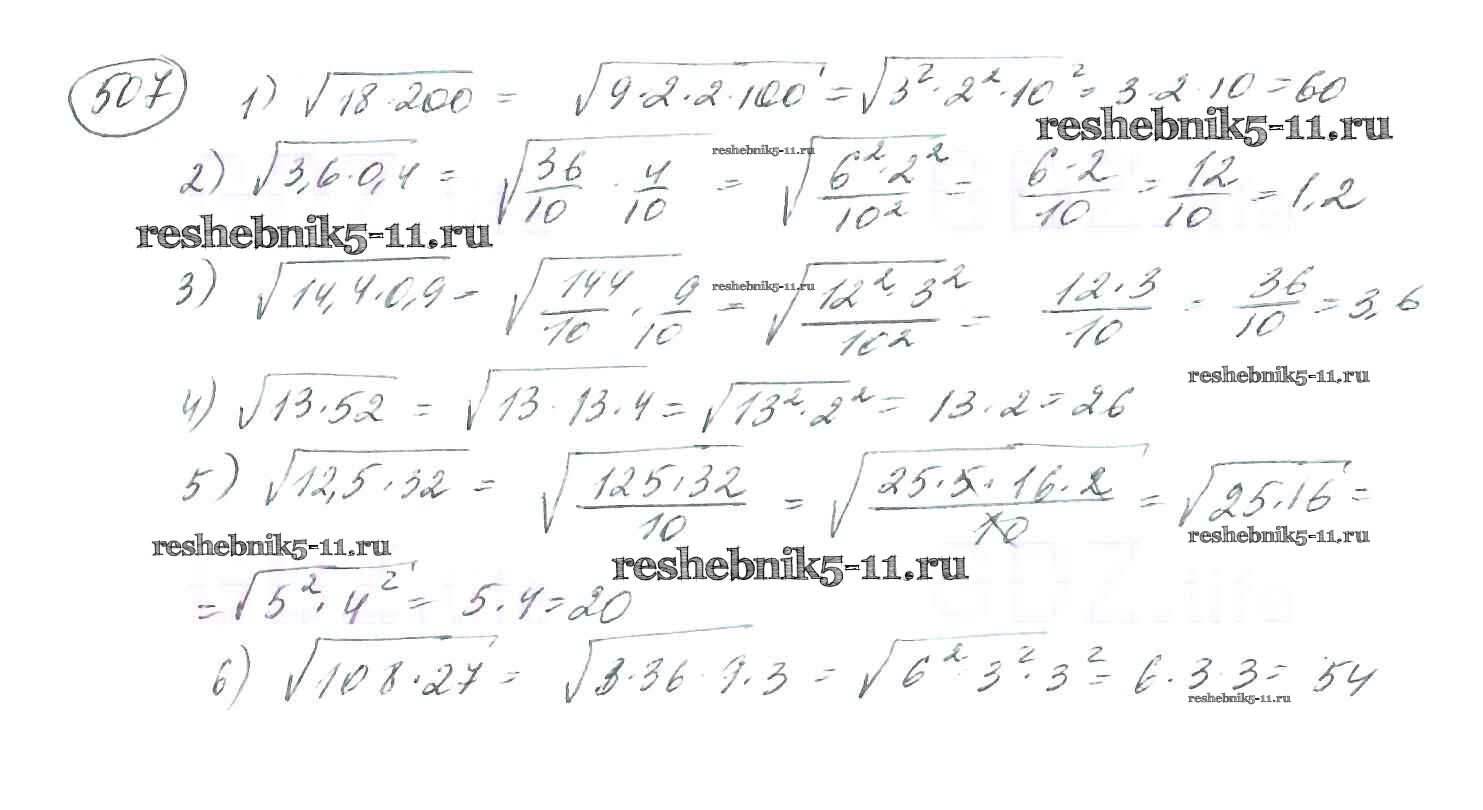 507 1) √18·200 = √9·2·2·100 = √3²·2²·10² = 3·2·10 = 60
reshebnik5-11.ru
2) √3,6·0,4 = √36/10 · 4/10 = √6²·2²/10² = 6·2/10 = 12/10 = 1,2
reshebnik5-11.ru
reshebnik5-11.ru
3) √14,4·0,9 = √144/10 · 9/10 = √12²·3²/10² = 12·3/10 = 36/10 = 3,6
reshebnik5-11.ru
reshebnik5-11.ru
4) √13·52 = √13·13·4 = √13²·2² = 13·2 = 26
5) √12,5·32 = √125·32/10 = √25·5·16·2/10 = √25·16 =
reshebnik5-11.ru
reshebnik5-11.ru
reshebnik5-11.ru
= √5²·4² = 5·4 = 20
6) √108·27 = √3·36·9·3 = √6²·3²·3² = 6·3·3 = 54
reshebnik5-11.ru